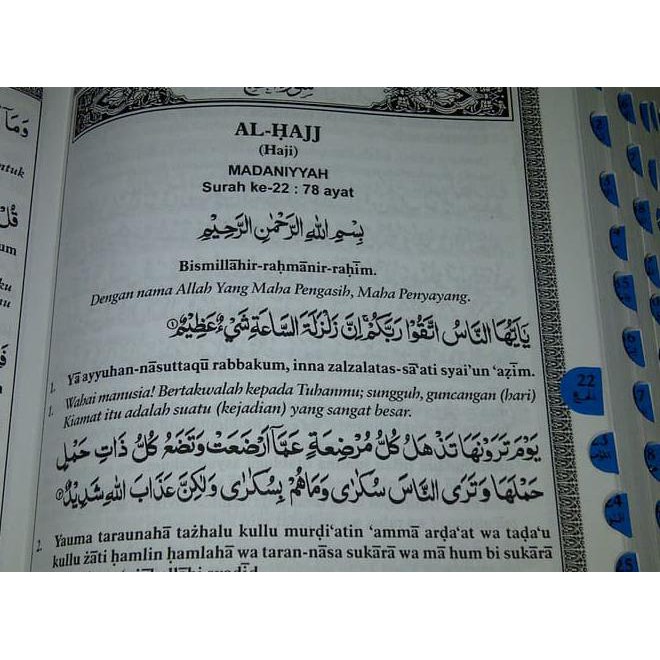 AL-ḤAJJ
(Haji)
MADANIYYAH
Surah ke-22 : 78 ayat
بِسْمِ اللهِ الرَّحْمٰنِ الرَّحِيْمِ
Bismillāhir-raḥmānir-raḥīm.
Dengan nama Allah Yang Maha Pengasih, Maha Penyayang.
يٰٓاَيُّهَا النَّاسُ اتَّقُوْا رَبَّكُمْۚ اِنَّ زَلْزَلَةَ السَّاعَةِ شَيْءٌ عَظِيْمٌ ١
1. Yā ayyuhan-nāsuttaqū rabbakum, inna zalzalatas-sā‘ati syai'un ‘aẓīm.
1. Wahai manusia! Bertakwalah kepada Tuhanmu; sungguh, guncangan (hari)
Kiamat itu adalah suatu (kejadian) yang sangat besar.
يَوْمَ تَرَوْنَهَا تَذْهَلُ كُلُّ مُرْضِعَةٍ عَمَّآ اَرْضَعَتْ وَتَضَعُ كُلُّ ذَاتِ حَمْلٍ
حَمْلَهَا وَتَرَى النَّاسَ سُكٰرٰى وَمَا هُمْ بِسُكٰرٰى وَلٰكِنَّ عَذَابَ اللهِ شَدِيْدٌ ٢
2. Yauma taraunahā tażhalu kullu murḍi‘atin ‘ammā arḍa‘at wa taḍa‘u
kullu żāti ḥamlin ḥamlahā wa taran-nāsa sukārā wa mā hum bi sukārā
22
الحج
23
24
25